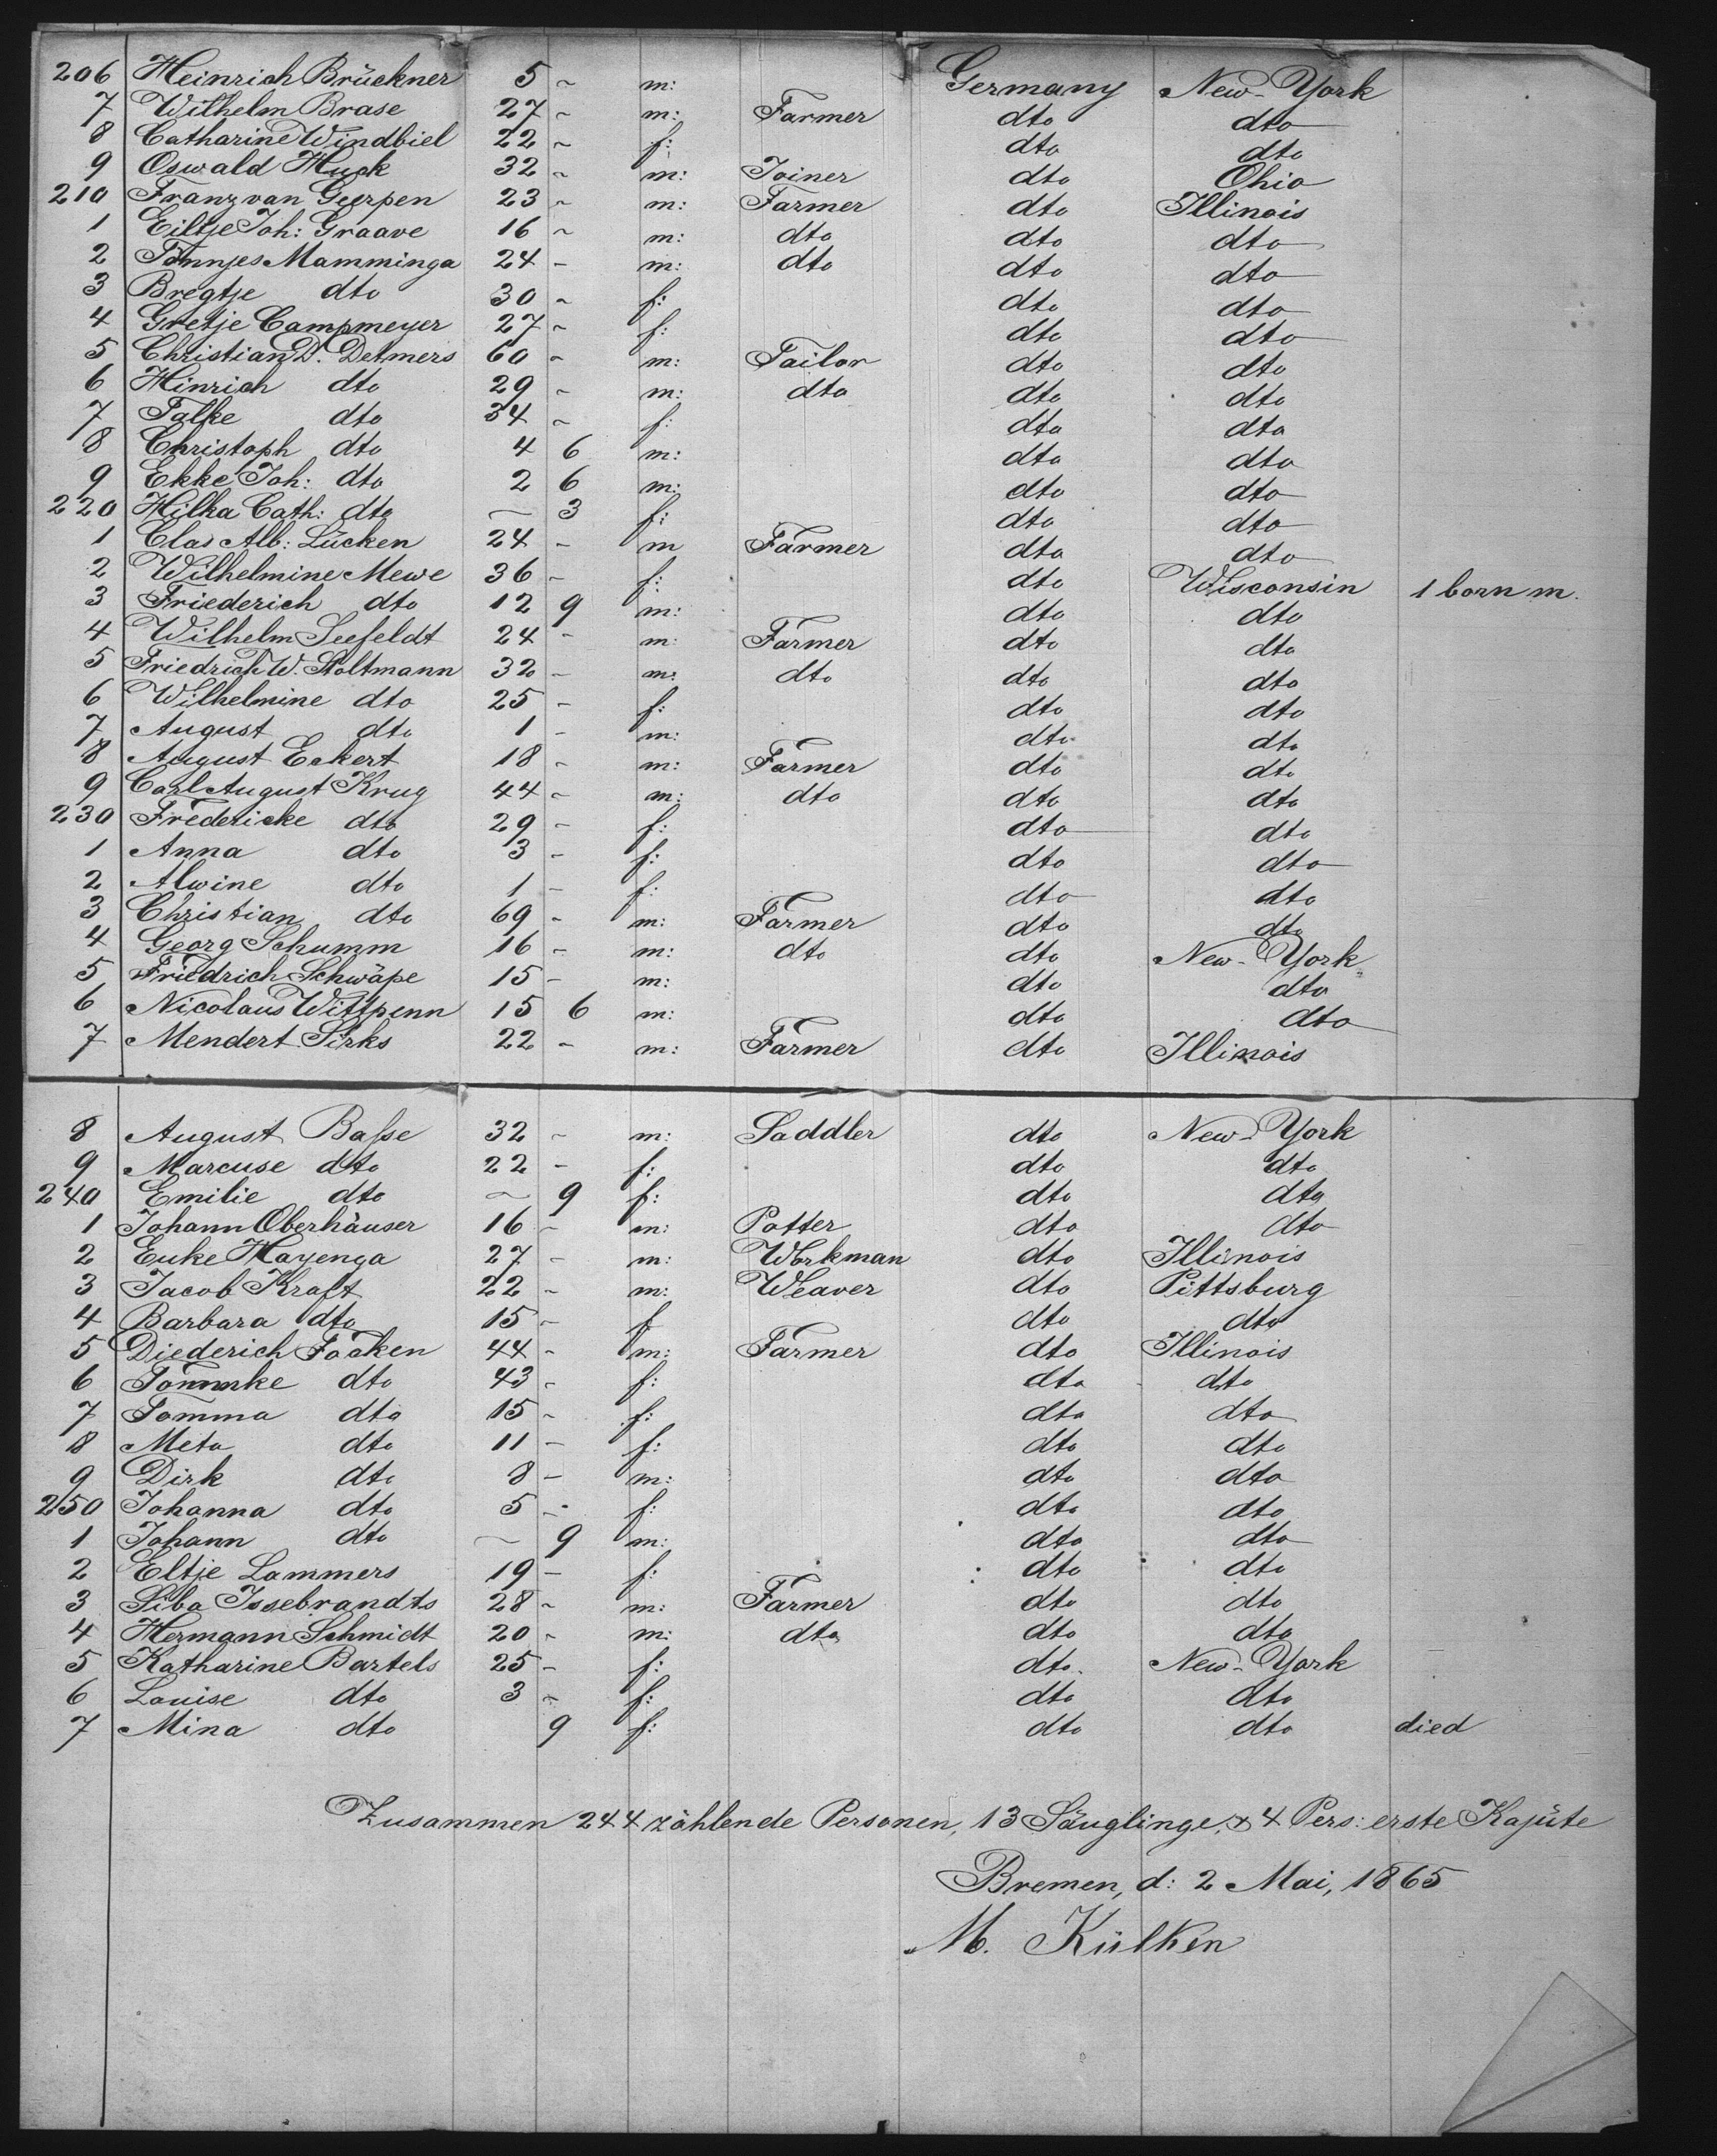 206 Heinrich Brückner 5 ~ m: Germany New-York
7 Wilhelm Brase 27 ~ m: Farmer dto dto
8 Catharine Windbiel 22 ~ f: dto dto
9 Oswald Huck 32 ~ m: Joiner dto Ohio
210 Franz van Gerpen 23 ~ m: Farmer dto Illinois
1 Eiltje Joh: Graave 16 ~ m: dto dto dto
2 Tönnjes Mamminga 24 - m: dto dto dto
3 Bregtje dto 30 ~ f: dto dto
4 Gretje Campmeyer 27 ~ f: dto dto
5 Christian D. Detmers 60 ~ m: Tailor dto dto
6 Hinrich dto 29 ~ m: dto dto dto
7 Talke dto 34 ~ f: dto dto
8 Christoph dto 4 6 m: dto dto
9 Ekke Joh: dto 2 6 m: dto dto
220 Hilka Cath: dto ~ 3 f: dto dto
1 Clas Alb: Lücken 24 - m Farmer dto dto
2 Wilhelmine Mewe 36 - f: dto Wisconsin 1 born m.
3 Friederich dto 12 9 m: dto dto
4 Wilhelm Seefeldt 24 - m: Farmer dto dto
5 Friedrich W. Stoltmann 32 - m: dto dto dto
6 Wilhelmine dto 25 - f: dto dto
7 August dto 1 - m: dto dto
8 August Eckert 18 - m: Farmer dto dto
9 Carl August Krug 44 ~ m: dto dto dto
230 Fredericke dto 29 - f: dto dto
1 Anna dto 3 - f: dto dto
2 Alwine dto 1 - f: dto dto
3 Christian dto 69 - m: Farmer dto dto
4 Georg Schumm 16 - m: dto dto New-York
5 Friedrich Schwäpe 15 - m: dto dto
6 Nicolaus Wittpenn 15 6 m: dto dto
7 Mendert Sirks 22 - m: Farmer dto Illinois
8 August Baſse 32 ~ m: Saddler dto New-York
9 Marcuse dto 22 - f: dto dto
240 Emilie dto ~ 9 f: dto dto
1 Johann Oberhäuser 16 ~ m: Potter dto dto
2 Euke Hayenga 27 - m: Workman dto Illinois
3 Jacob Kraft 22 - m: Weaver dto Pittsburg
4 Barbara dto 15 - f dto dto
5 Diederich Focken 44 - m: Farmer dto Illinois
6 dto 43 - f: dto dto
7 Tomma dto 15 - f: dto dto
8 Meta dto 11 - f: dto dto
9 Dirk dto 8 - m: dto dto
250 Johanna dto 5 - f: dto dto
1 Johann dto ~ 9 m: dto dto
2 Eltje Lammers 19 - f: dto dto
3 Siba Issebrandts 28 ~ m: Farmer dto dto
4 Hermann Schmidt 20 - m: dto dto dto
5 Katharine Bartels 25 - f: dto New-York
6 Louise dto 3 ~ f: dto dto
7 Mina dto 9 f: dto dto died
Zusammen 244 zählende Personen, 13 Säuglinge, & 4 Pers: erste Kajüte
Bremen, d: 2 Mai, 1865
M. Külken